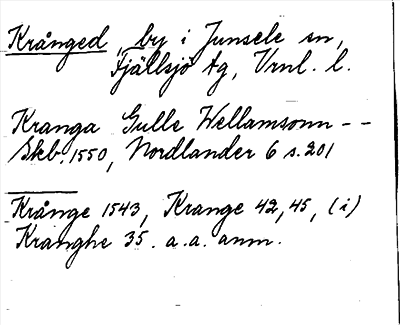 Krånged, by i Junsele sn,
Fjällsjö tg, Vrnl. l.
Kranga Gulle Wellamsonn - -
Skb. 1550, Nordlander 6 s. 201
Krånge 1543, Krange 42, 45, (i)
Kranghe 35. a.a. anm.